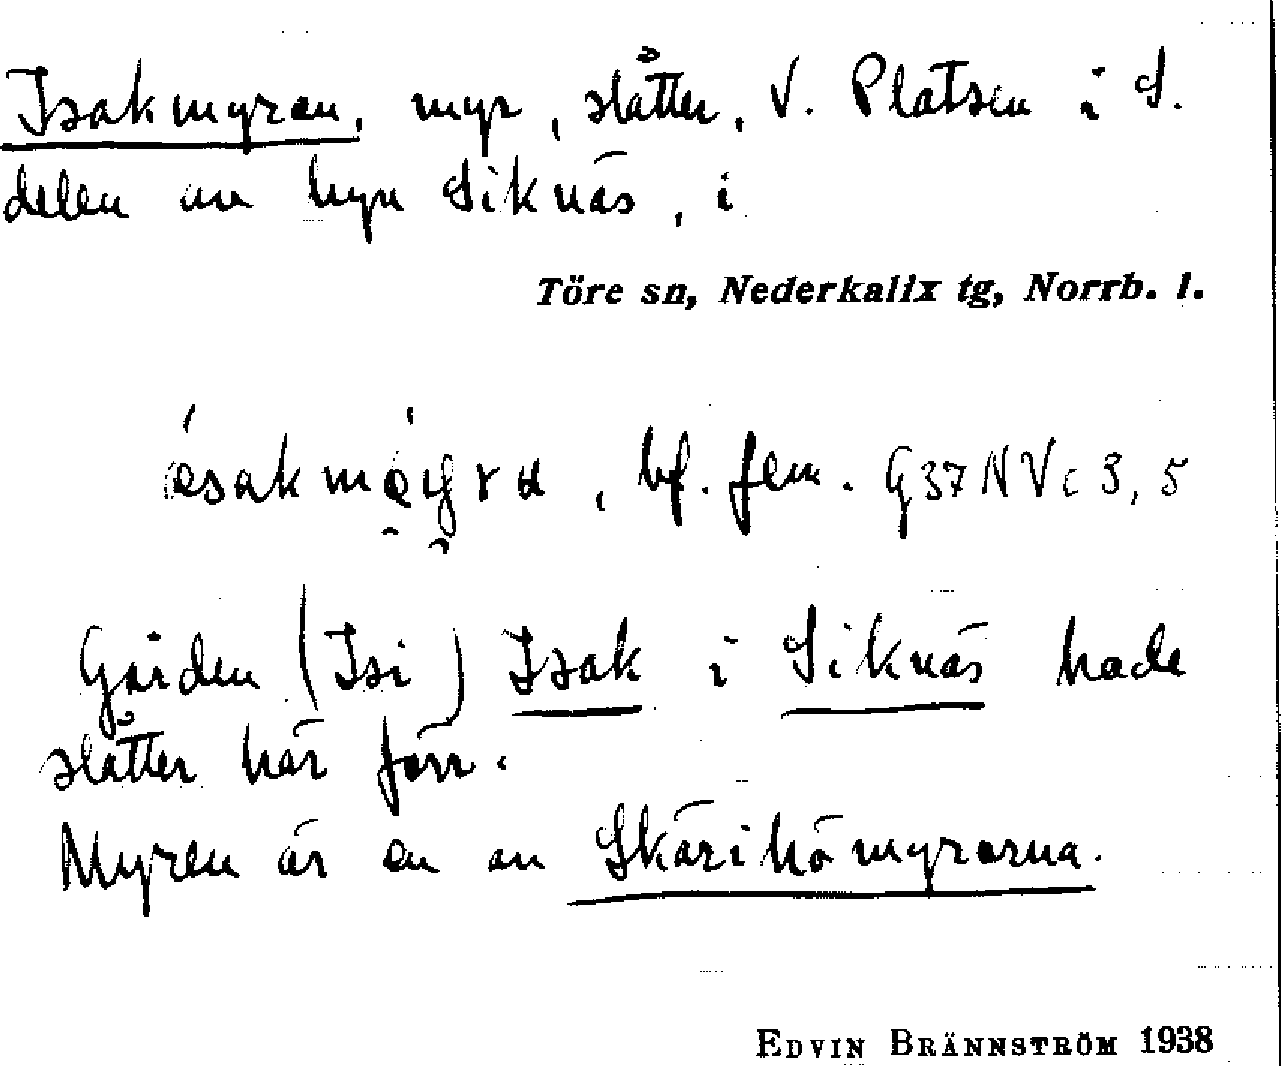 Isakmyren, myr, slåtter, V. Platsen i S.
delen av byn Siknäs, i
Töre sn, Nederkalix tg, Norrb. l.
bf. fem. G37NVc 3, 5
Gården (Isi) Isak i Siknäs hade
slåtter här förr.
Myren är en av Skärihömyrarna.
EDVIN BRÄNNSTRÖM 1938